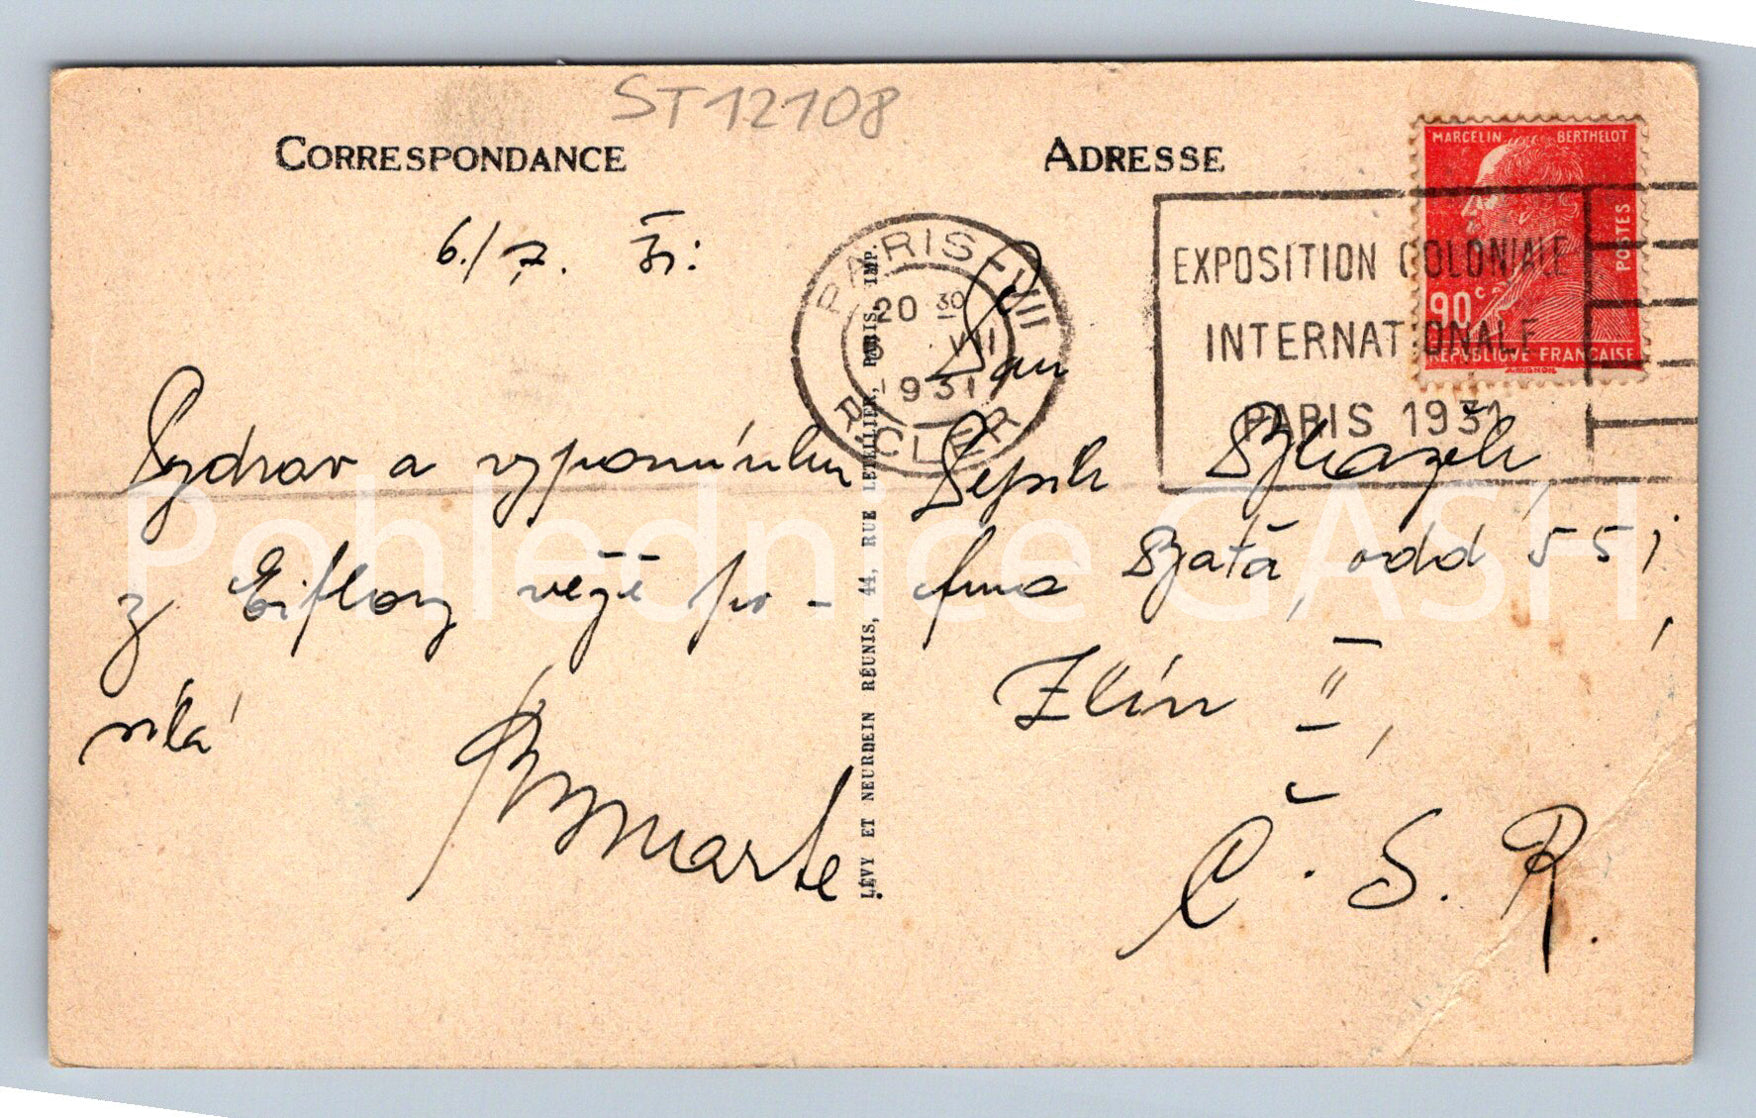 ST12108
CORRESPONDANCE
ADRESSE
MARCELIN BERTHELOT
POSTES
90c
REPUBLIQUE FRANÇAISE
PARIS-VIII
20 30
6 VII
1931
R. CLER
EXPOSITION COLONIALE
INTERNATIONALE
PARIS 1931
6./7. 31:
Pozdrav a vzpomínku
z Eiflovy věže po-
sílá
LÉVY ET NEURDEIN RÉUNIS, 44, RUE LETELLIER, PARIS, IMP.
Pan
Pepík
fma Baťa, odd 551,
Zlín II,
Č. S. R.
Pohlednice GASH